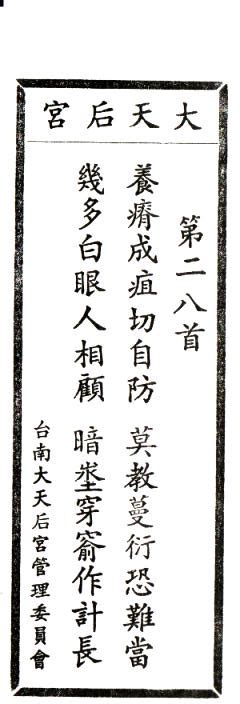 大天后宮
第二八首
養瘠成疽切自防 莫教蔓衍恐難當
幾多白眼人相顧 暗穿窬作計長
台南大天后宮管理委員會